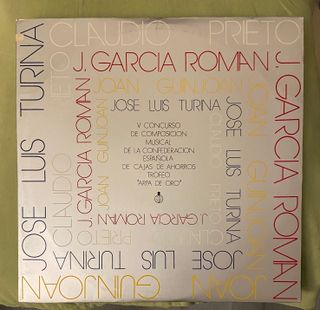 CLAUDIO PRIETO
J. GARCIA ROMAN
JOAN GUINJOAN
JOSE LUIS TURINA
V CONCURSO
DE COMPOSICION
MUSICAL
DE LA CONFEDERACION
ESPAÑOLA
DE CAJAS DE AHORROS
TROFEO
"ARPA DE ORO"
JOSE LUIS TURINA
CLAUDIO PRIETO
J. GARCIA ROMAN
JOAN GUINJOAN
J. GARCIA ROMAN
JOAN GUINJOAN
JOSE LUIS TURINA
CLAUDIO PRIETO
J. GARCIA ROMAN
CLAUDIO PRIETO
JOSE LUIS TURINA
JOAN GUINJOAN